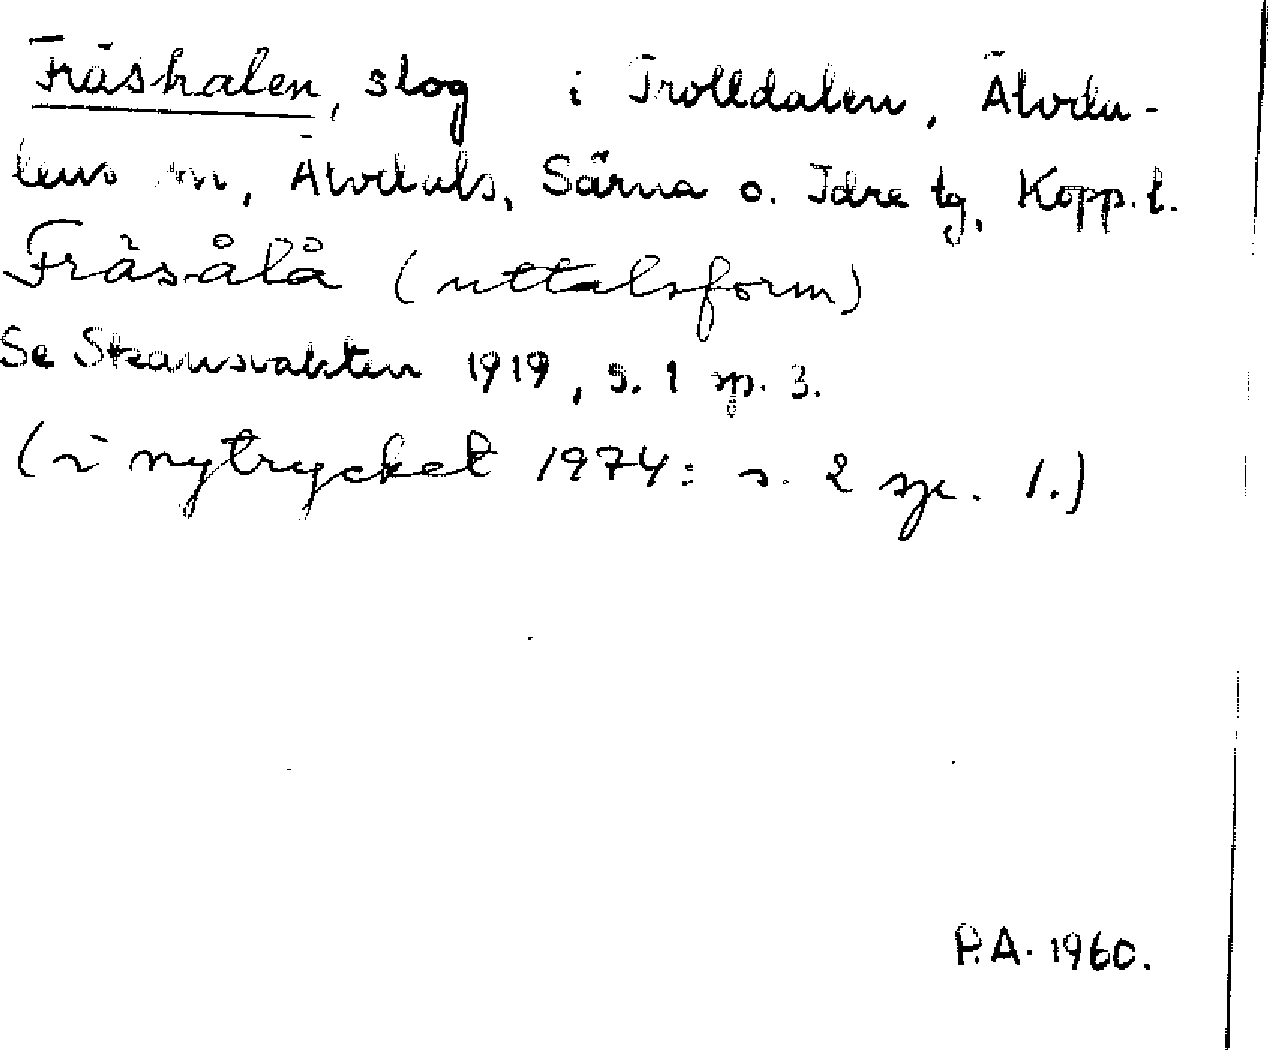 Fräshalen, slog i Trolldalen, Älvda-
lens sn, Älvdals, Särna o. Idre tg, Kopp. l.
Fräsålå (uttalsform)
Se Skansvakten 1919, s. 1 sp. 3.
(i nytrycket 1974: s. 2 sp. 1.)
P.A. 1960.